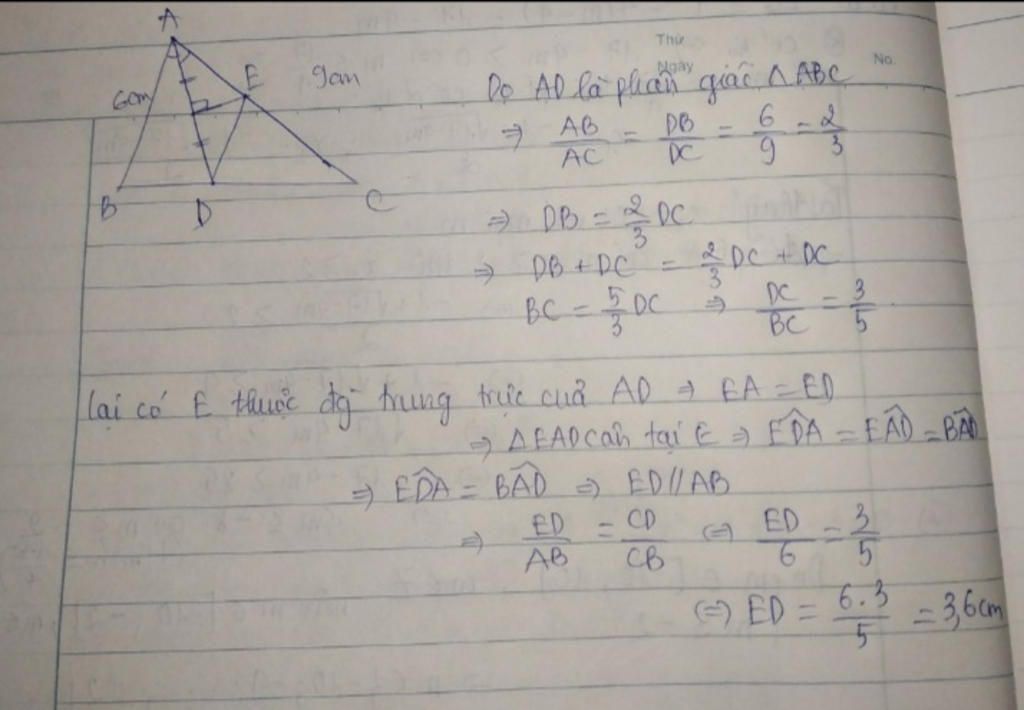 A
6cm
E
9cm
B
D
C
Thứ
Ngày
No.
Do AD là phân giác △ ABC
⇒ AB/AC = DB/DC = 6/9 = 2/3
⇒ DB = 2/3 DC
⇒ DB + DC = 2/3 DC + DC
BC = 5/3 DC ⇒ DC/BC = 3/5
lại có E thuộc đg trung trực cuả AD ⇒ EA = ED
⇒ △EAD cân tại E ⇒ ED̂A = EÂD = BÂD
⇒ ED̂A = BÂD ⇒ ED // AB
⇒ ED/AB = CD/CB ⇔ ED/6 = 3/5
⇔ ED = 6.3/5 = 3,6cm